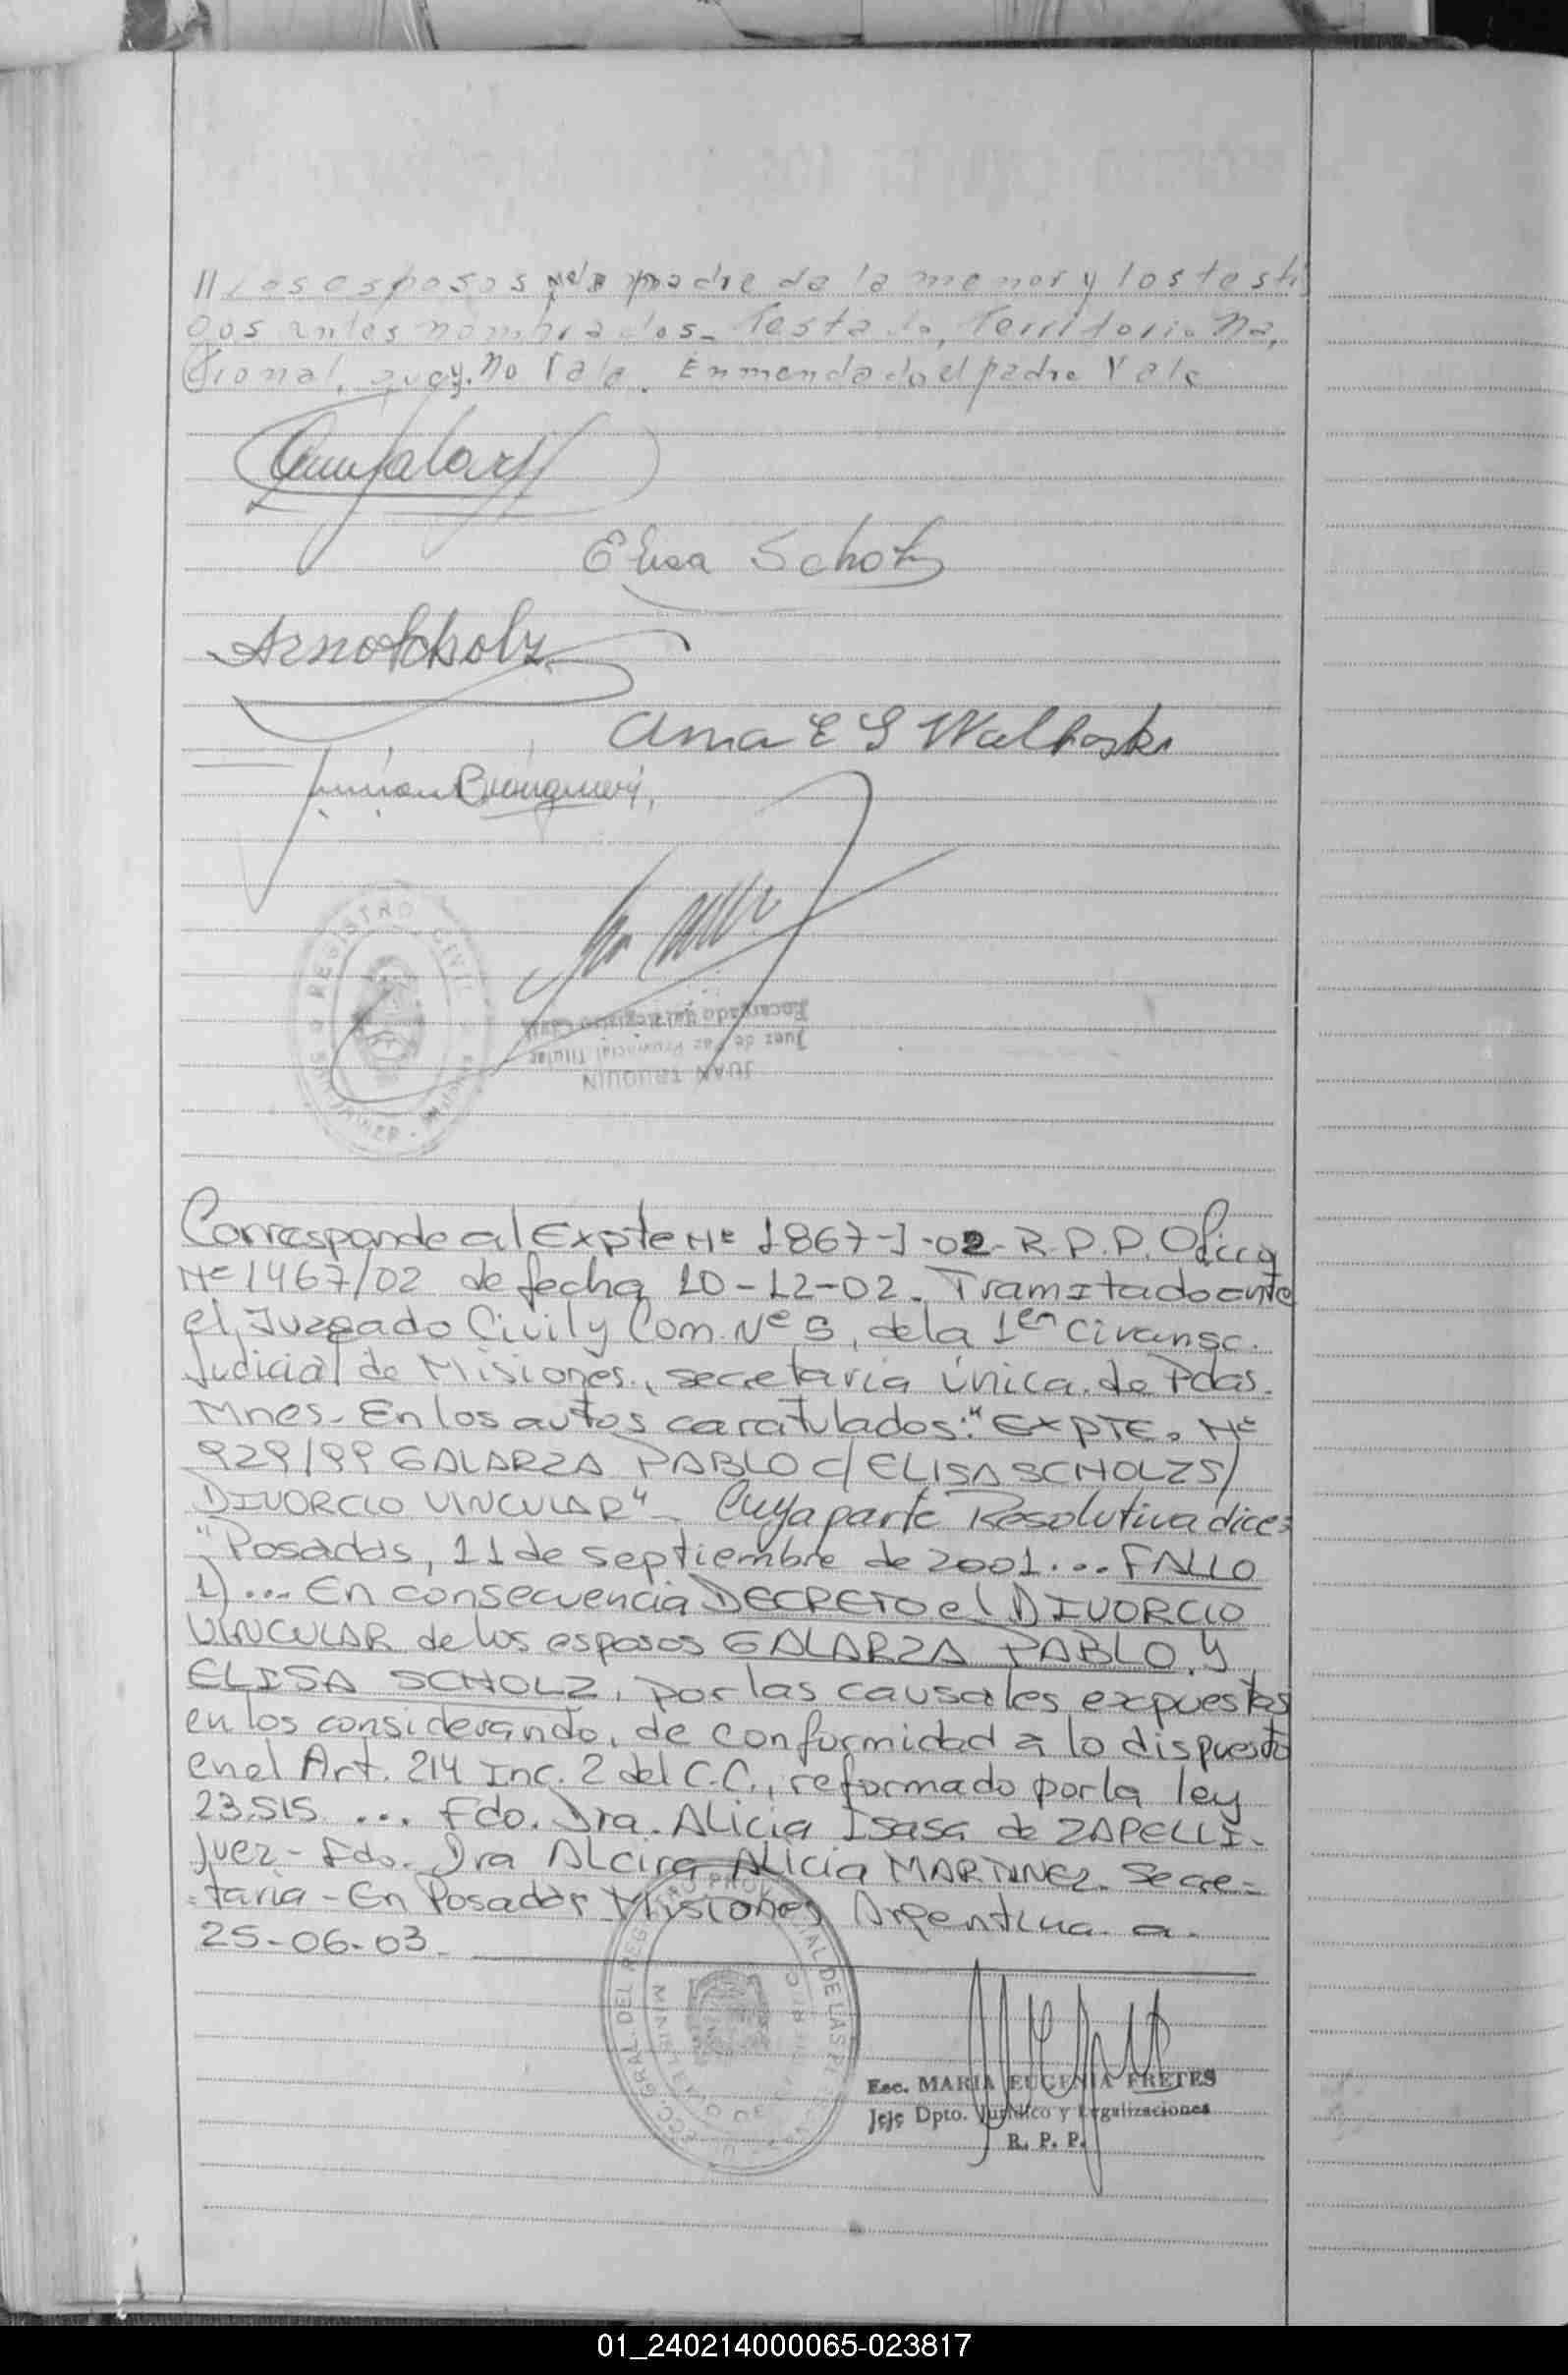 // Los esposos, padre de la menor y los testi
gos antes nombrados_ Testado, Territorio Na,
cional, que y. no Vale. Enmendado el padre Vale
Elisa Scholz
Arnoscholz
Ana E S Walkoski
REGISTRO CIVIL
JUAN TRUQUIN
Juez de Paz Provincial Titular
Encargado del Registro Civil
Corresponde al Expte Nº 1867-J-02-R.P.P. Oficio
Nº 1467/02 de fecha 10-12-02. Tramitado ante
el Juzgado Civil y Com. Nº 5, de la 1era Circunsc.
Judicial de Misiones, secretaria única de Pdas.
Mnes_ En los autos caratulados: "EXPTE. Nº
929/99 GALARZA PABLO C/ ELISA SCHOLZ S/
DIVORCIO VINCULAR" _ Cuya parte Resolutiva dice:
"Posadas, 11 de septiembre de 2001... FALLO
1)... En consecuencia DECRETO el DIVORCIO
VINCULAR de los esposos GALARZA PABLO y
ELISA SCHOLZ, por las causales expuestas
en los considerando, de conformidad a lo dispuesto
en el Art. 214 Inc. 2 del C.C., reformado por la ley
23.515 ... Fdo. Dra. Alicia Isasa de ZAPELLI-
Juez - Fdo. Dra Alcira Alicia MARTINEZ. Secre-
taria - En Posadas Misiones Argentina a.
25-06-03.
Esc. MARIA EUGENIA FRETES
Jefe Dpto. Jurídico y Legalizaciones
R. P. P.
01_240214000065-023817